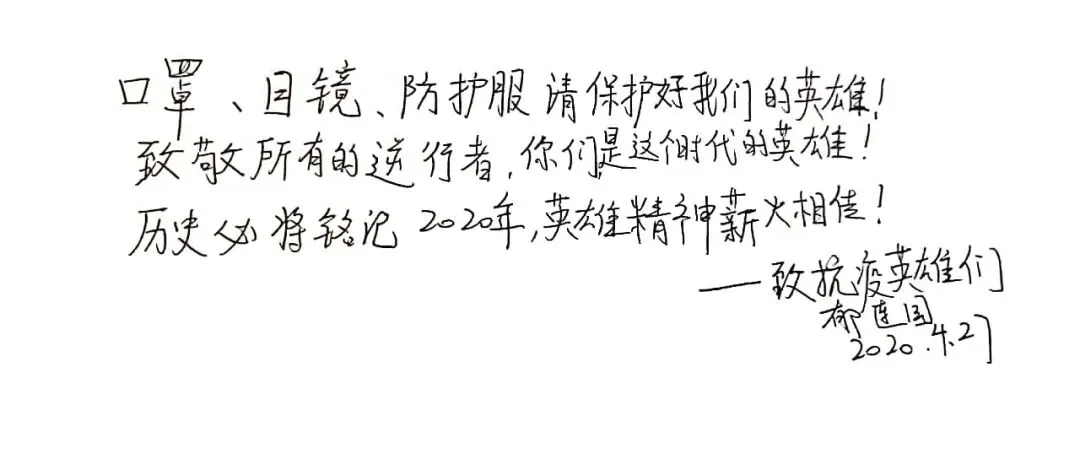 口罩、目镜、防护服请保护好我们的英雄!
致敬所有的逆行者,你们是这个时代的英雄!
历史必将铭记2020年,英雄精神薪火相传!
——致抗疫英雄们
郁连国
2020.4.27